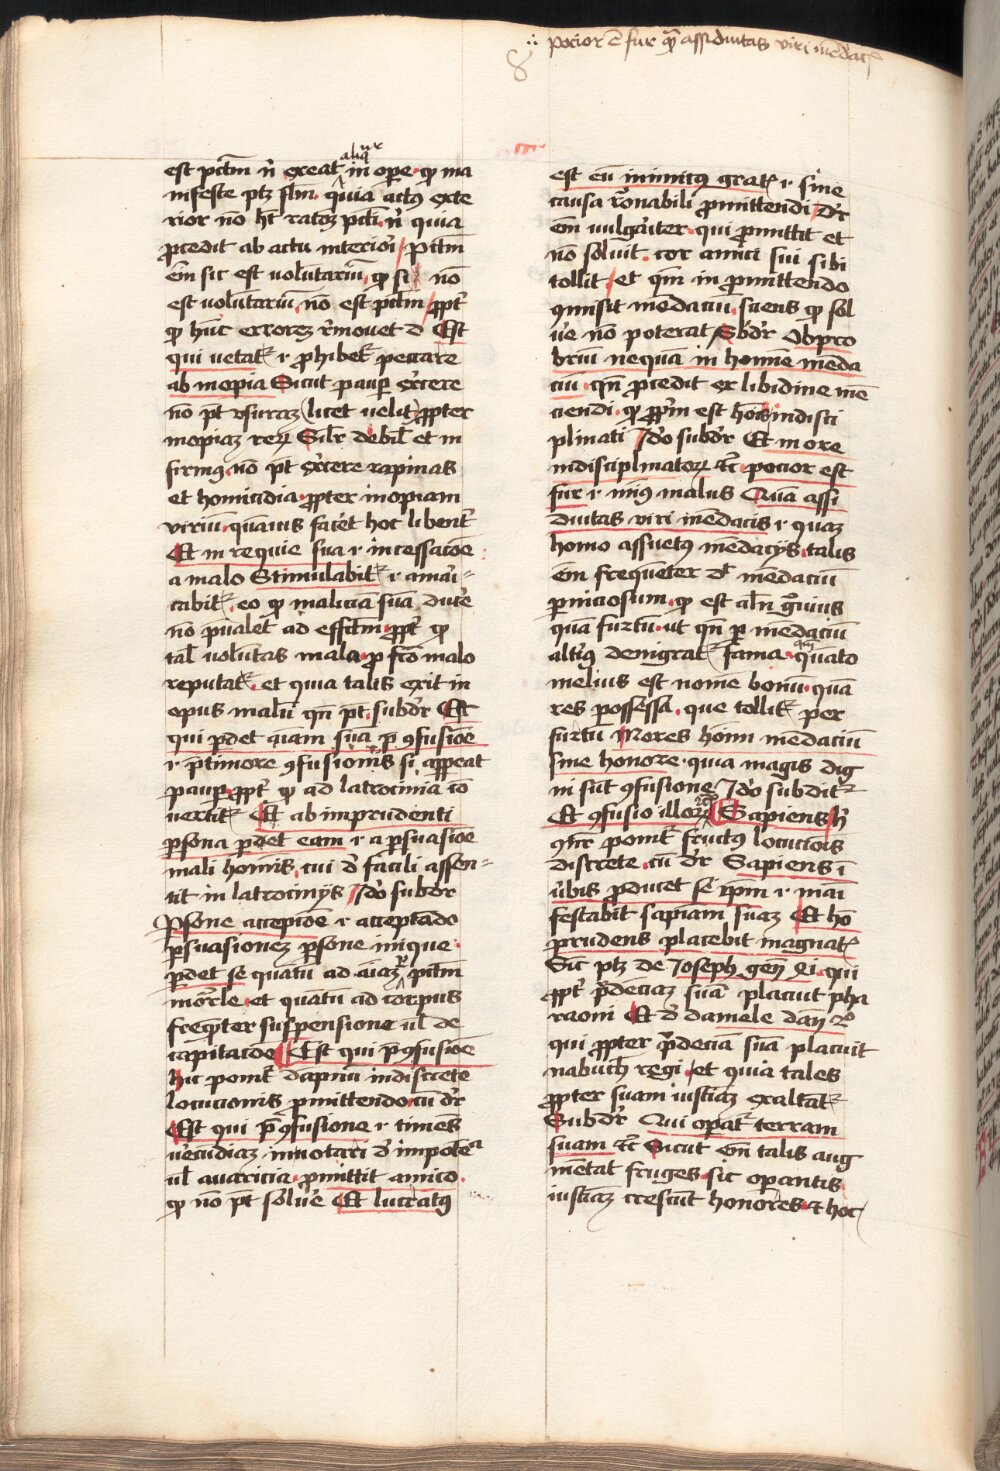 ∴ pocior ē fur qͣ assiduitas viri mēdacꝭ
est pctm̄ nͥ ꝯcreat aliqͥ in oꝑe qꝫ ma
nifeste ptꝫ flm. quia actꝰ exte
rior nō hꝫ ratōeꝫ pcti. nͥ quia
ꝓcedit ab actu interioi / pctm̄
em̄ sic est volūtariū ꝙ si nō
est volūtariū nō est pctm̄ ꝓpt̉
ꝙ hūc erroreꝫ r̉movet d Est
qui vetatᷣ r ꝓhibetᷣ peccare
ab inopia Sicut pauꝑ ex̉cere
nō pt̄ vsuraꝫ (licet velit) ꝓpter
inopiaꝫ reꝝ Sil̉r debil̉ et in
firmꝰ nō pt̄ ex̉cere rapinas
et homicidia ꝓpter inopiam
viriū quāuis fac̉et hoc libent̉
Et in requie sua r incessacōe
a malo Stimulabitᷣ r amari=
cabitᷣ eo ꝙ maliciā suā duc̉e
nō p̄ualet ad effctm̄ ꝓpt̉ ꝙ
tal̉ volūtas mala ꝓ fc̄o malo
reputatᷣ et quia talis exit in
opus malū qn̄ pt̄ subd̉r Est
qui ꝑdet aīam suā p̄ ꝯfusiōe
r p̄ timore ꝯfusionis si appeat
pauꝑ ꝓpt̉ ꝙ ad latrocinia ꝯ
vertitᷣ Et ab imprudenti
ꝑsona ꝑdet eam r a ꝑsuasiōe
mali homis cui d̉ facili assen=
tit in latrocinijs Ido subd̉r
Ꝑsone accepiōe r acceptādo
ꝑsuasioneꝫ ꝑsone inique
ꝑdet se quātū ad aīaꝫ ꝑ pctm̄
mor̉le et quātū ad corpus
freqn̄ter suspensione vl̉ de
capitacōe Est qui p̄ ꝯfusiōe
hic ponit̉ dāpnū indiscrete
locucionis ꝓmittendo cū d̉r
Est qui p̄ ꝯfusione r timēs
vẻcūdiaꝫ innotari d̉ impotēcia
vl̉ avaricia ꝓmittit amico
ꝙ nō pt̄ solv̉e Et lucratꝰ
est eū inimicū gratꝭ r sine
causa r̉onabili ꝓmittendi d̉r
em̄ vulgar̉ter qui ꝓmittit et
nō solvit cor amici sui sibi
tollit / et qm̄ in ꝓmittendo
ꝯmisit mēdaciū sciens ꝙ sol
vẻ nō poterat Sbd̉r Obpro
briū nequā in homīe mēda
ciū qn̄ ꝓcedit ex libidine mē
ciendi ꝙ ꝓp̉m est hois indisci
plinati Ido subd̉r Et in ore
indisciplinatoꝝ ⁊c̄ pocior est
fur r minꝰ malus Quā assi
duitas viri mēdacis r quaꝫ
homo assuetꝰ mēdacijs talis
em̄ freqūeter d̉t mēdaciū
ꝑniciosum ꝙ est al̉n gͣuius
quā furtū ut qn̄ ꝑ mēdaciū
altiꝰ denigratᷣ fama quāto
melius est nomē bonū quā
res possessa que tollitᷣ per
furtū Mores hoim̄ mēdaciū
sine honore quia magis dig
ni sūt ꝯfusione Ido subditᷣ
Et ꝯfusio illoꝝ Sapiens ī v̉
ꝯn̄r ponit̉ fructꝰ locucōis
discrete cū d̉r Sapiens ī
v̉bis ꝓducet se ip̄m r māi
festabit sapiam suaꝫ Et hō
prudens placebit magnatꝭ
Sic ptꝫ de Joseph gen̄ xli qui
ꝓpt̉ p̉denciaꝫ suā placuit pha
raoni Et d̉ daniele dan̄ 2º
qui ꝓpter p̉denciā suā placuit
nabuch̄ regi et quia tales
ꝓpter suam iusticiaꝫ exaltātᷣ
Subd̉r Qui opatᷣ terram
suam ⁊c̄ Sicut em̄ talis aug
mētat fruges sic operantis
iusticiaꝫ crescūt honores ⁊ hoc